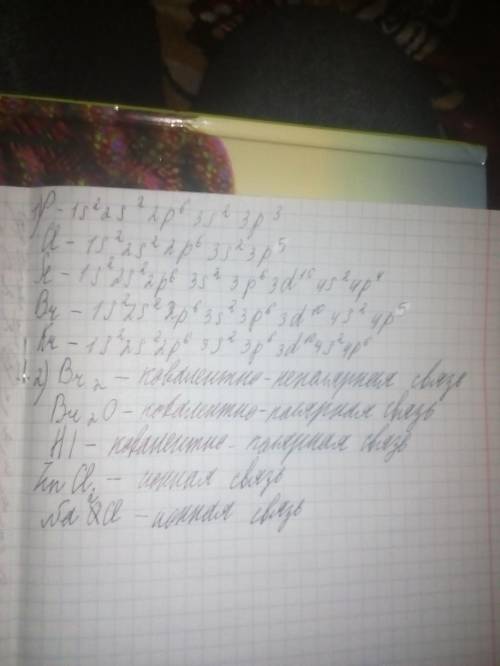 1) P - 1s² 2s² 2p⁶ 3s² 3p³
Cl - 1s² 2s² 2p⁶ 3s² 3p⁵
- 1s² 2s² 2p⁶ 3s² 3p⁶ 3d¹⁰ 4s² 4p⁴
Br - 1s² 2s² 2p⁶ 3s² 3p⁶ 3d¹⁰ 4s² 4p⁵
Kr - 1s² 2s² 2p⁶ 3s² 3p⁶ 3d¹⁰ 4s² 4p⁶
2) Br₂ - ковалентно-неполярная связь
Br₂O - ковалентно-полярная связь
HI - ковалентно-полярная связь
ZnCl₂ - ионная связь
- ионная связь